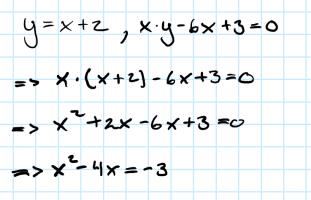 y = x + 2 , x · y - 6x + 3 = 0
=> x · (x + 2) - 6x + 3 = 0
=> x² + 2x - 6x + 3 = 0
=> x² - 4x = -3